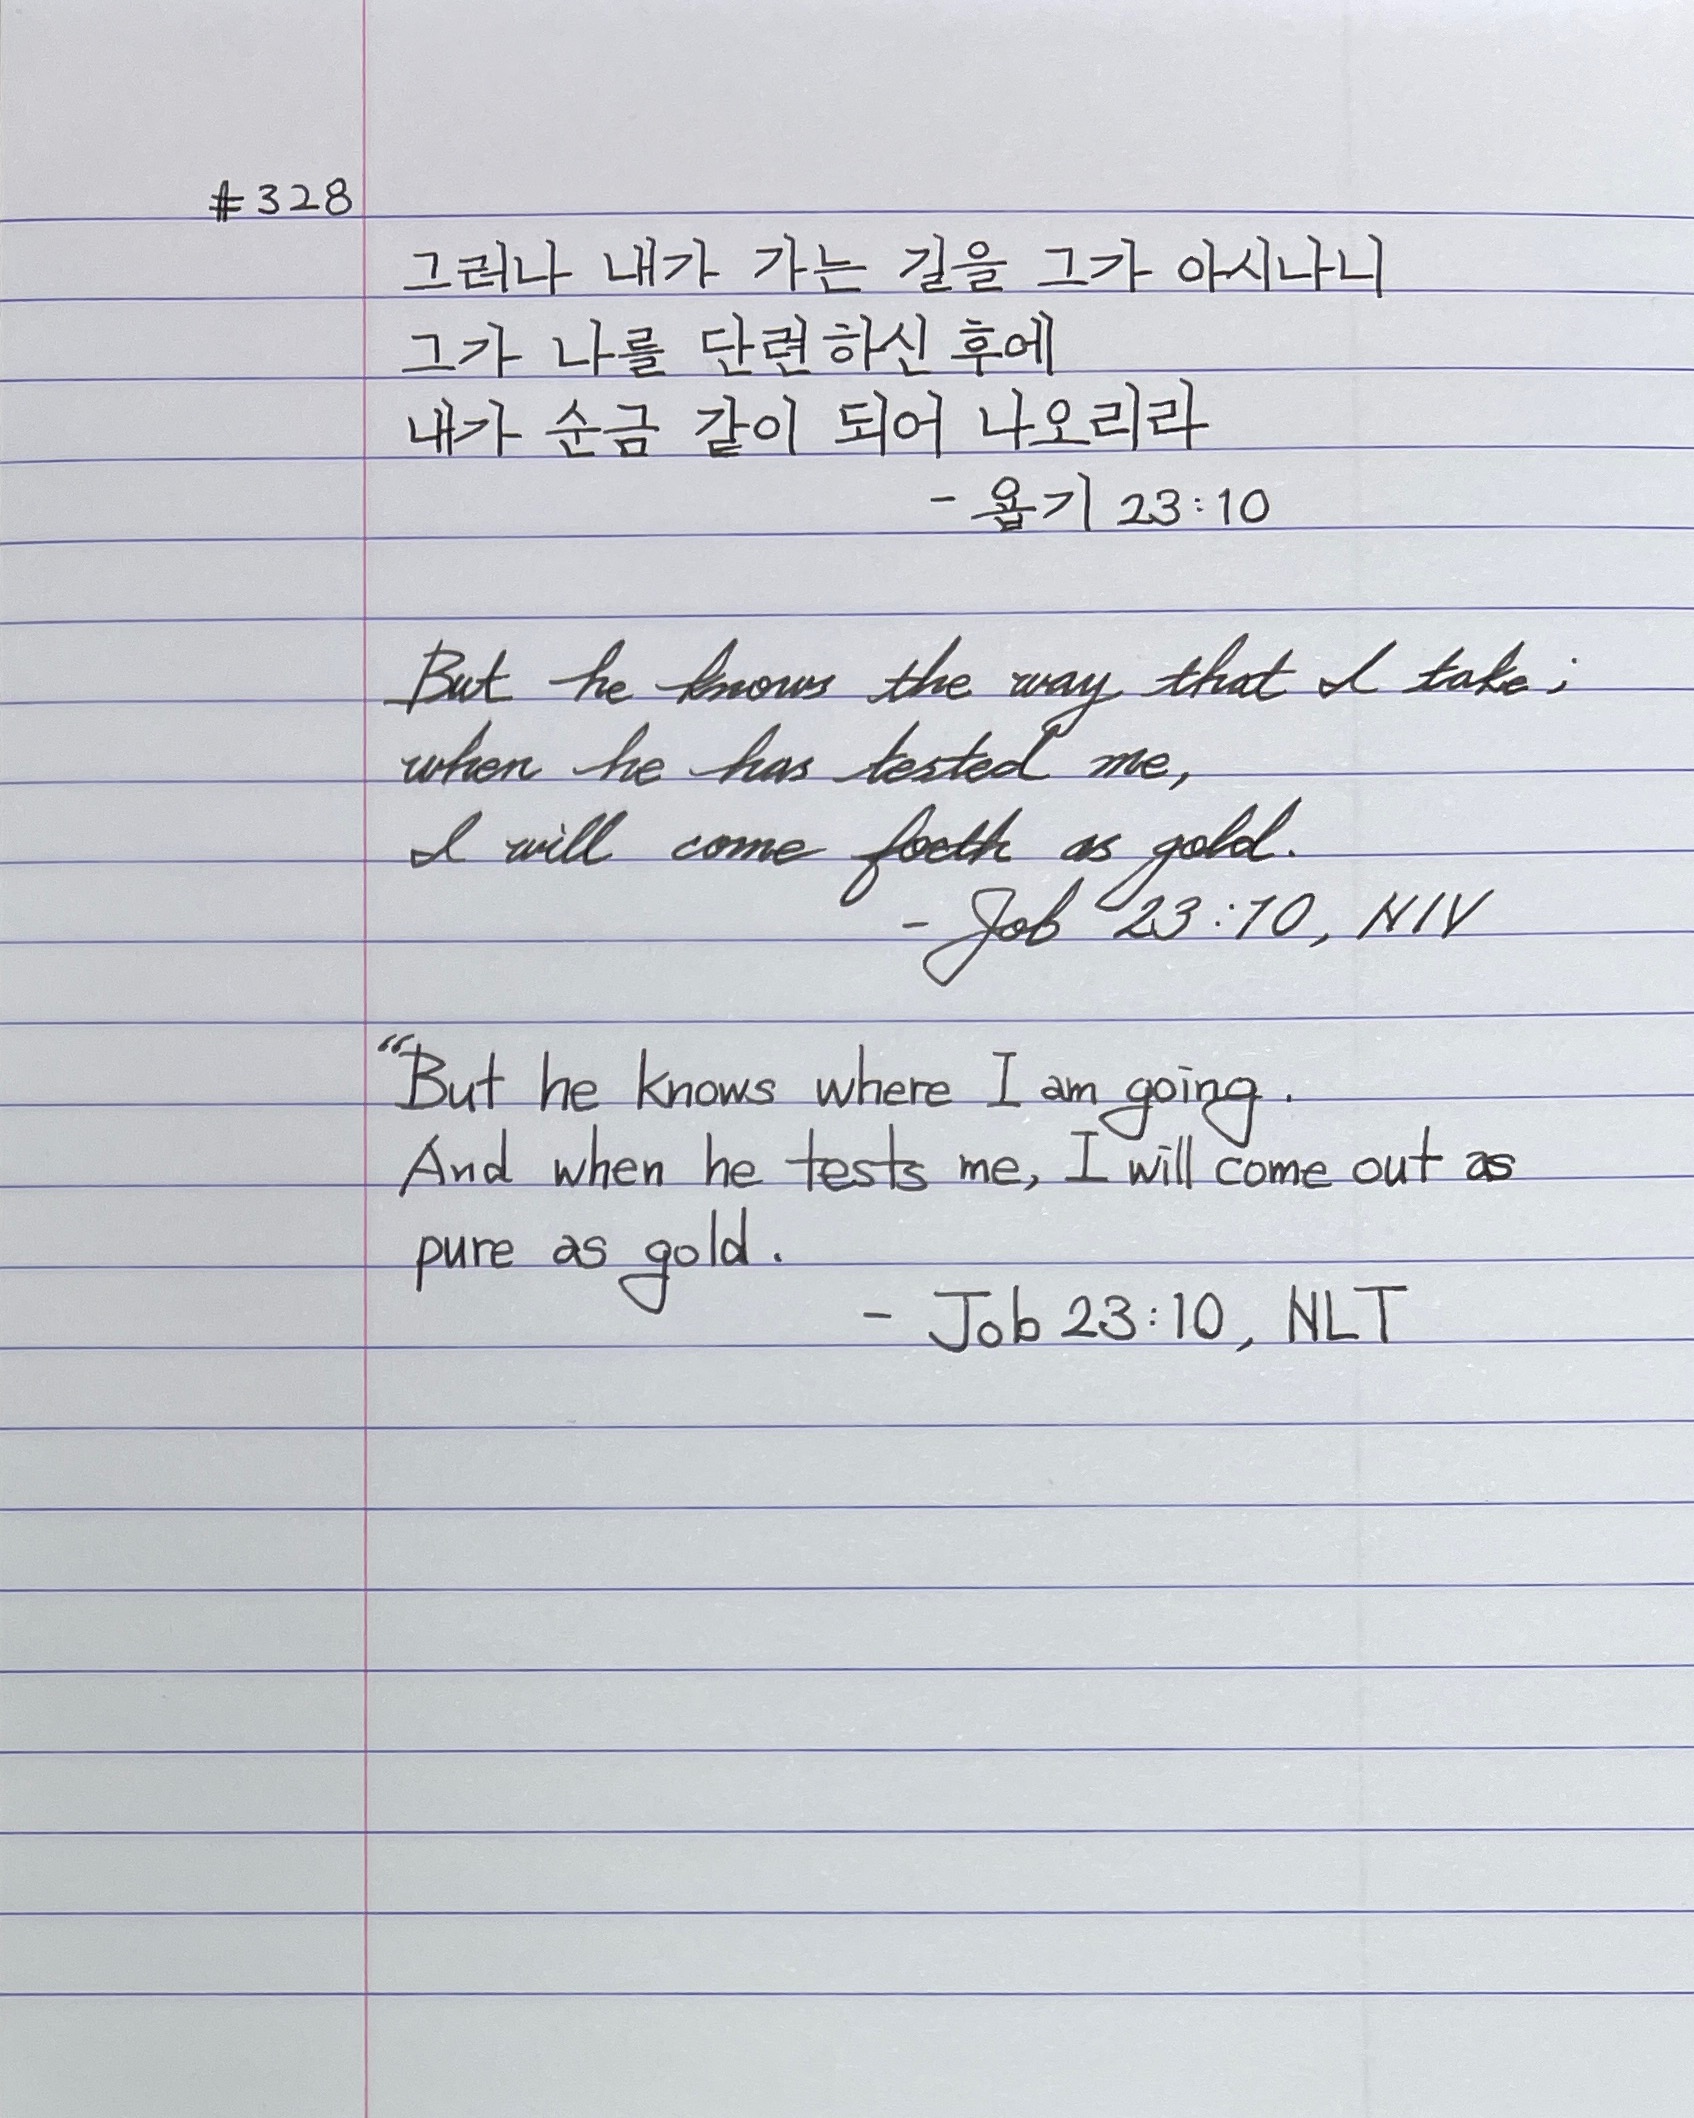 #328
그러나 내가 가는 길을 그가 아시나니
그가 나를 단련하신 후에
내가 순금 같이 되어 나오리라
- 욥기 23:10
But he knows the way that I take;
when he has tested me,
I will come forth as gold.
- Job 23:10, NIV
“But he knows where I am going.
And when he tests me, I will come out as
pure as gold.
- Job 23:10, NLT